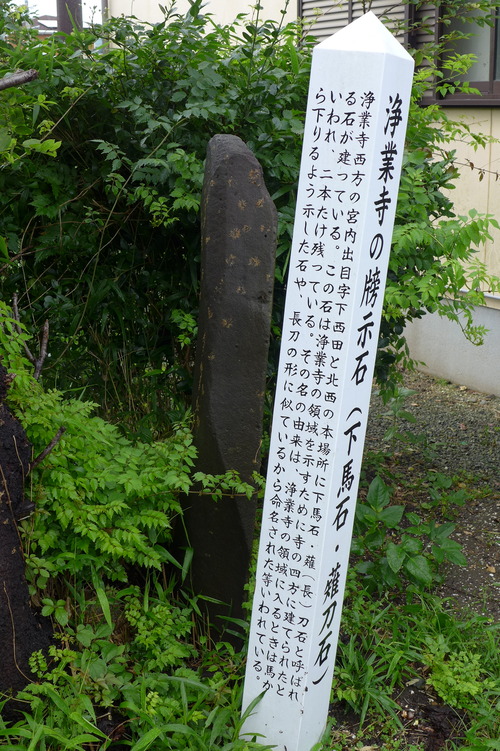 浄業寺の牓示石（下馬石・薙刀石）
浄業寺西方の宮内出目字下西田と北西の本場所に下馬石・薙（長）刀石と呼ばれ
る石が建っている。この石は浄業寺の領域を示すために寺の四方に建てられたと
いわれ、二本だけ残っている。その名の由来は、浄業寺の領域に入るときは馬か
ら下りるよう示した石や、長刀の形に似ているから命名された等いわれている。